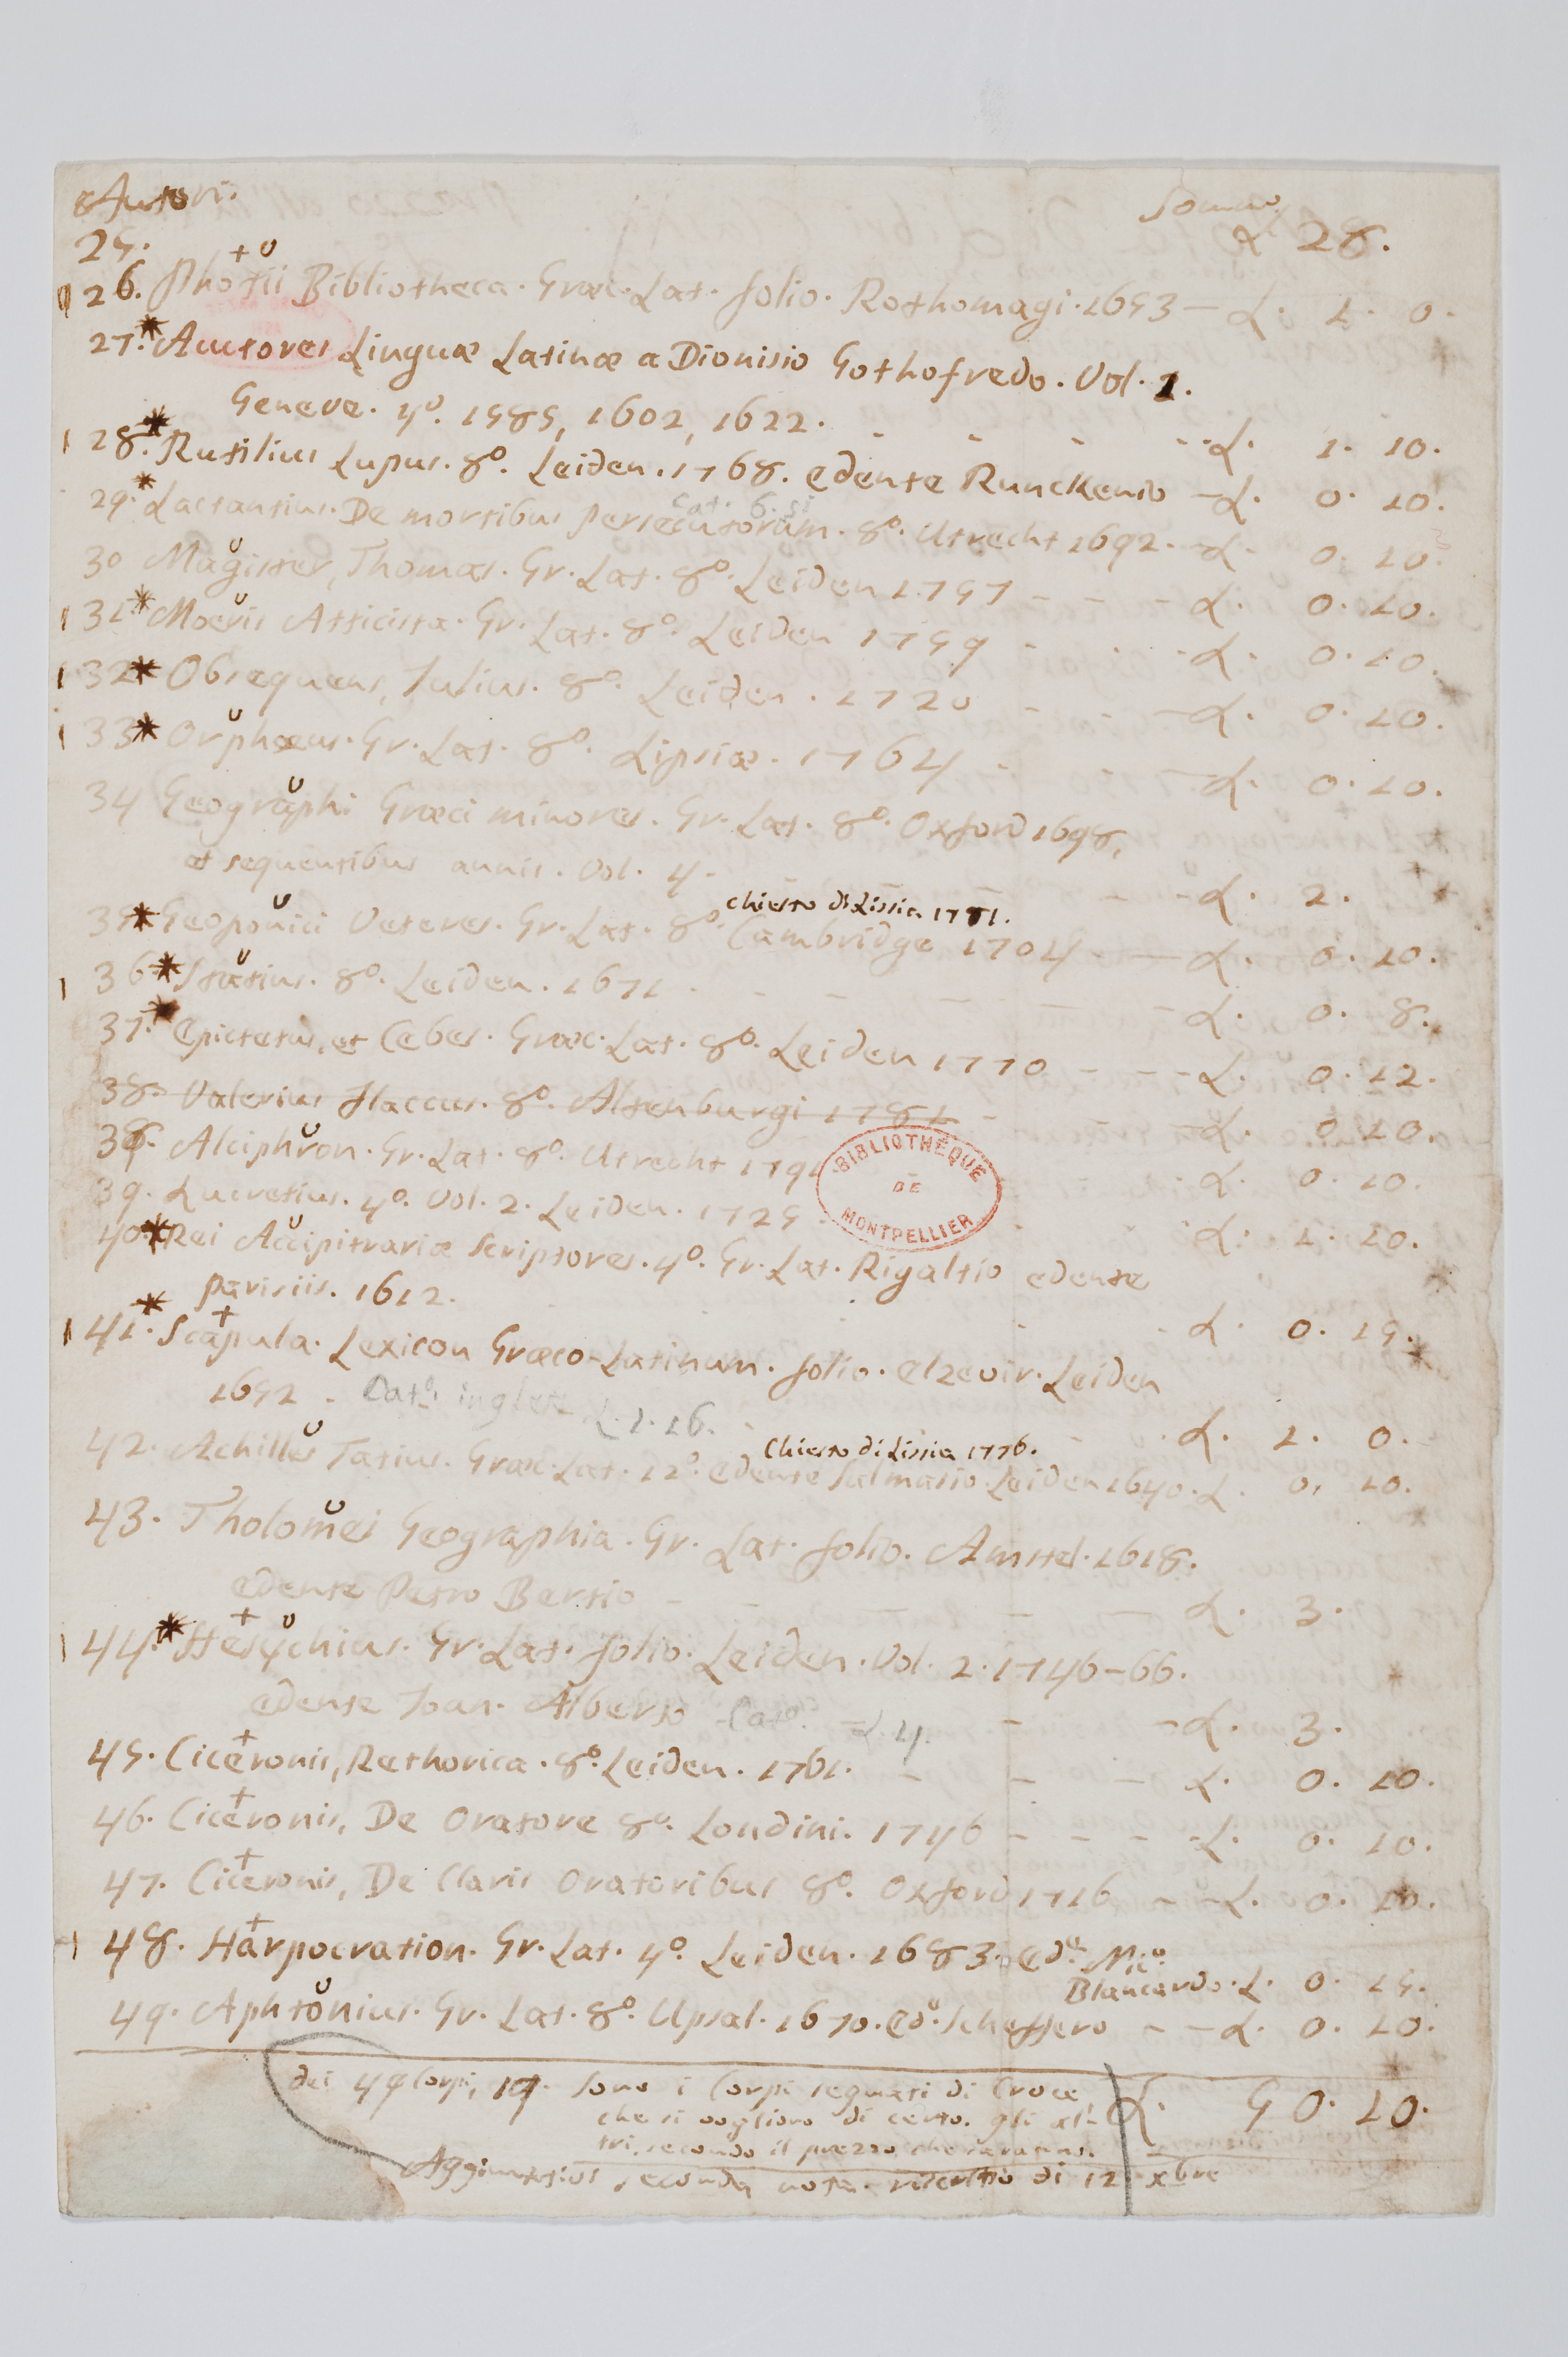 Autori.
Somma
25. L 28.
26. Photii Bibliotheca. Græc. Lat. folio. Rothomagi. 1653 — L. 1. 0.
27. * Auctores Linguæ Latinæ a Dionisio Gothofredo. Vol. 1.
Geneve. 4º. 1585, 1602, 1622. - - - - L. 1. 10.
28. * Rutilius Lupus. 8º. Leiden. 1768. edente Runckenio — L. 0. 10.
Cat. 6. si
29. * Lactantius. De mortibus persecutorum. 8º. Utrecht 1692. — L. 0. 10.
30 Magister, Thomas. Gr. Lat. 8º. Leiden 1757 - - - L. 0. 10.
31 * Moeris Atticista. Gr. Lat. 8º. Leiden 1759 - - - L. 0. 10.
32 * Obsequens, Julius. 8º. Leiden. 1720 - - - L. 0. 10.
33 * Orphæus. Gr. Lat. 8º. Lipsiæ. 1764 - - - L. 0. 10.
34 Geographi Græci minores. Gr. Lat. 8º. Oxford 1698,
et sequentibus annis. Vol. 4. - - - L. 2.
chiesto di Lissia 1781.
35 * Geoponici Veteres. Gr. Lat. 8º. Cambridge 1704 - — L. 0. 10.
36 * Statius. 8º. Leiden. 1671 - - - - L. 0. 8.
37. * Epictetus, et Cebes. Græc. Lat. 8º. Leiden 1770 - - - L. 0. 12.
38. Valerius Flaccus. 8º. Altenburgi 1781 - - L. 0. 10.
38. Alciphron. Gr. Lat. 8º. Utrecht 1791 - L. 0. 10.
39. Lucretius. 4º. Vol. 2. Leiden. 1725 - - L. 1. 10.
BIBLIOTHÈQUE
DE
MONTPELLIER
40. * Rei Accipitrariæ Scriptores. 4º. Gr. Lat. Rigaltio edente
Parisiis. 1612. - - - L. 0. 15.
41. * Scapula. Lexicon Græco-Latinum. folio. Elzevir. Leiden
1652 - Catº. inglese L. 1. 16. - - L. 1. 0.
Chiesto di Lissia 1776.
42. Achilles Tatius. Græc. Lat. 12º. edente Salmasio. Leiden 1640. L. 0. 10.
43. Tholomei Geographia. Gr. Lat. folio. Amstel. 1618.
edente Petro Bertio - - — L. 3.
44. * Hesychius. Gr. Lat. folio. Leiden. Vol. 2. 1746-66.
edente Joan. Alberto - Catº. - L. 4. - - L. 3.
45. Ciceronis, Rethorica. 8º. Leiden. 1761. - - - L. 0. 10.
46. Ciceronis, De Oratore 8º. Londini. 1746 - - - - L. 0. 10.
47. Ciceronis, De Claris Oratoribus 8º. Oxford 1716 - - L. 0. 10.
48. Harpocration. Gr. Lat. 4º. Leiden. 1683. Edᵉ. Nicº.
Blancardo. L. 0. 15.
49. Aphtonius. Gr. Lat. 8º. Upsal. 1670. Edº. Scheffero - - L. 0. 10.
dei 49 Corpi, 19. sono i Corpi segnati di Croce L. 50. 10.
che si vogliono di certo. gli al-
tri, secondo il prezzo che saranno.
seconda nota di 12 xbre